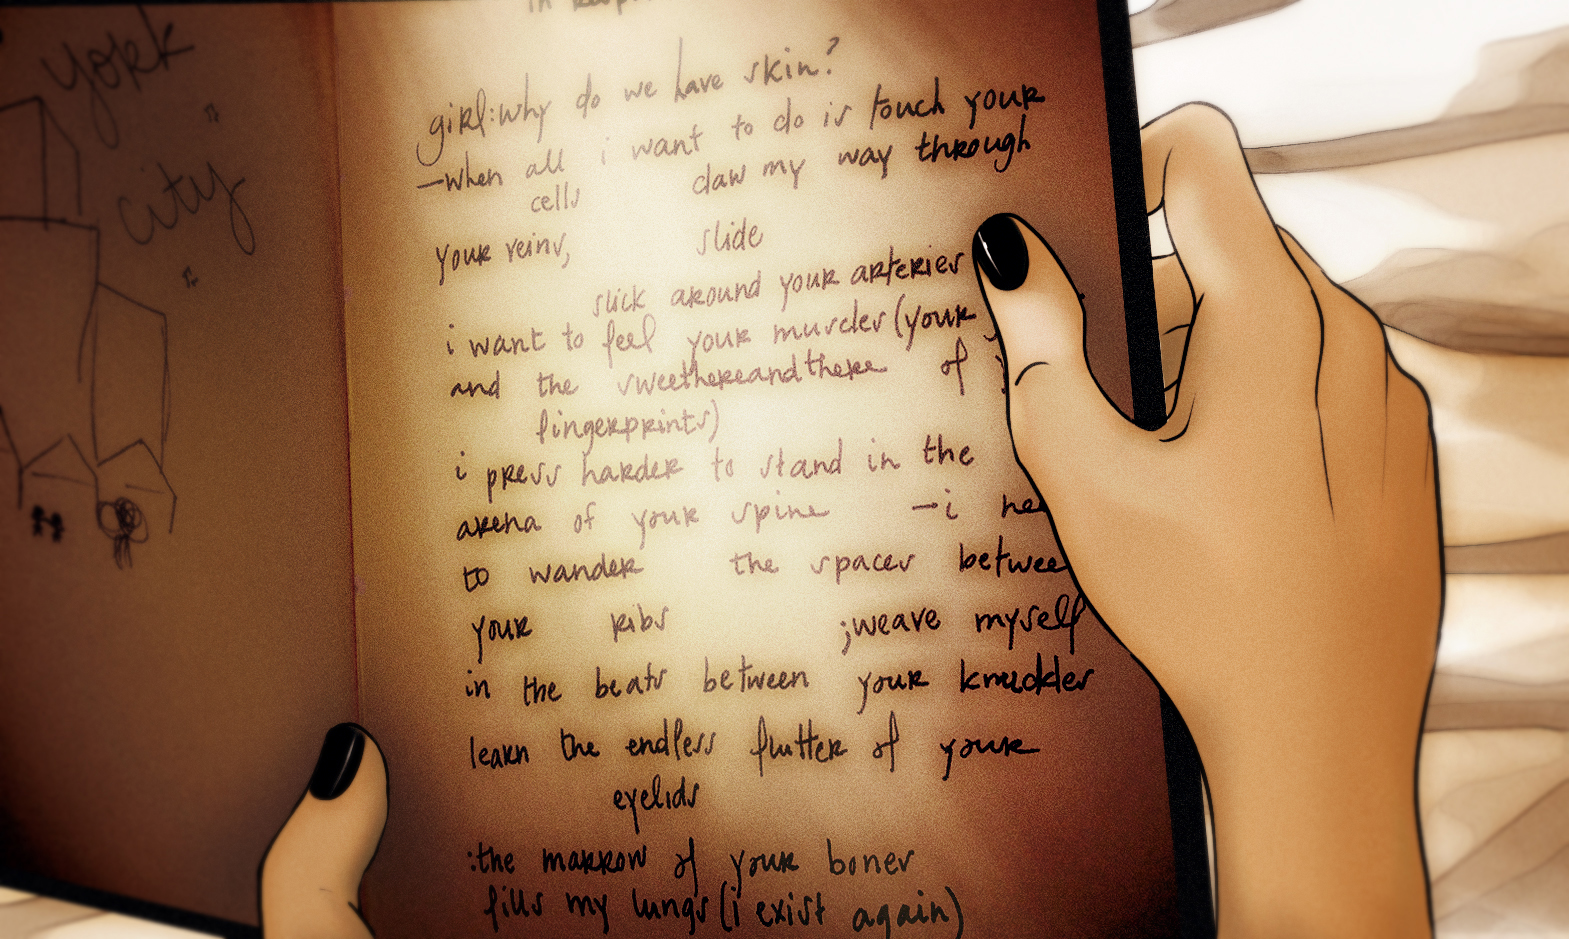 york
city
in
girl:why do we have skin?
—when all i want to do is touch your
cells claw my way through
your veins, slide
slick around your arteries
i want to feel your muscles (your
and the sweethereandthere of
fingerprints)
i press harder to stand in the
arena of your spine —i
to wander the spaces between
your ribs ;weave myself
in the beats between your knuckles
learn the endless flutter of your
eyelids
:the marrow of your bones
fills my lungs (i exist again)